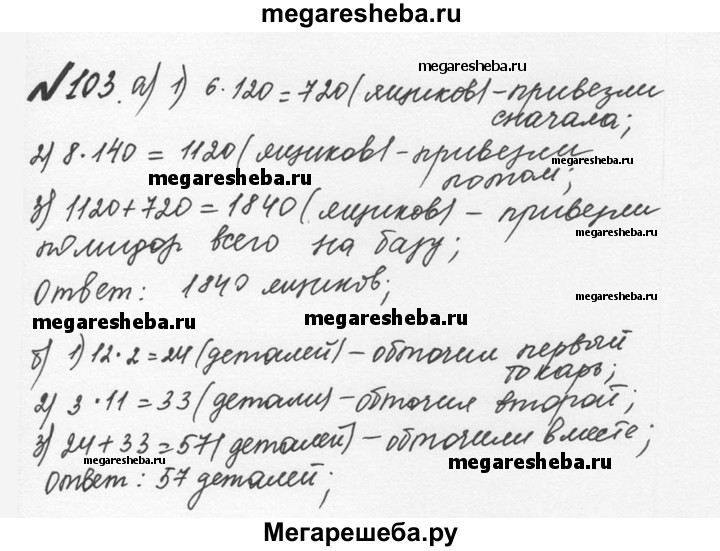 megaresheba.ru
megaresheba.ru
№103. а) 1) 6·120=720 (ящиков) - привезли
сначала;
2) 8·140 = 1120 (ящиков) - привезли
megaresheba.ru
megaresheba.ru
потом;
3) 1120+720=1840 (ящиков) - привезли
megaresheba.ru
помидор всего на базу;
Ответ: 1840 ящиков;
megaresheba.ru
megaresheba.ru
megaresheba.ru
б) 1) 12·2=24 (деталей) - обточил первый
токарь;
2) 3·11=33 (детали) - обточил второй;
3) 24+33=57 (деталей) - обточили вместе;
megaresheba.ru
megaresheba.ru
Ответ: 57 деталей;
Мегарешеба.ру